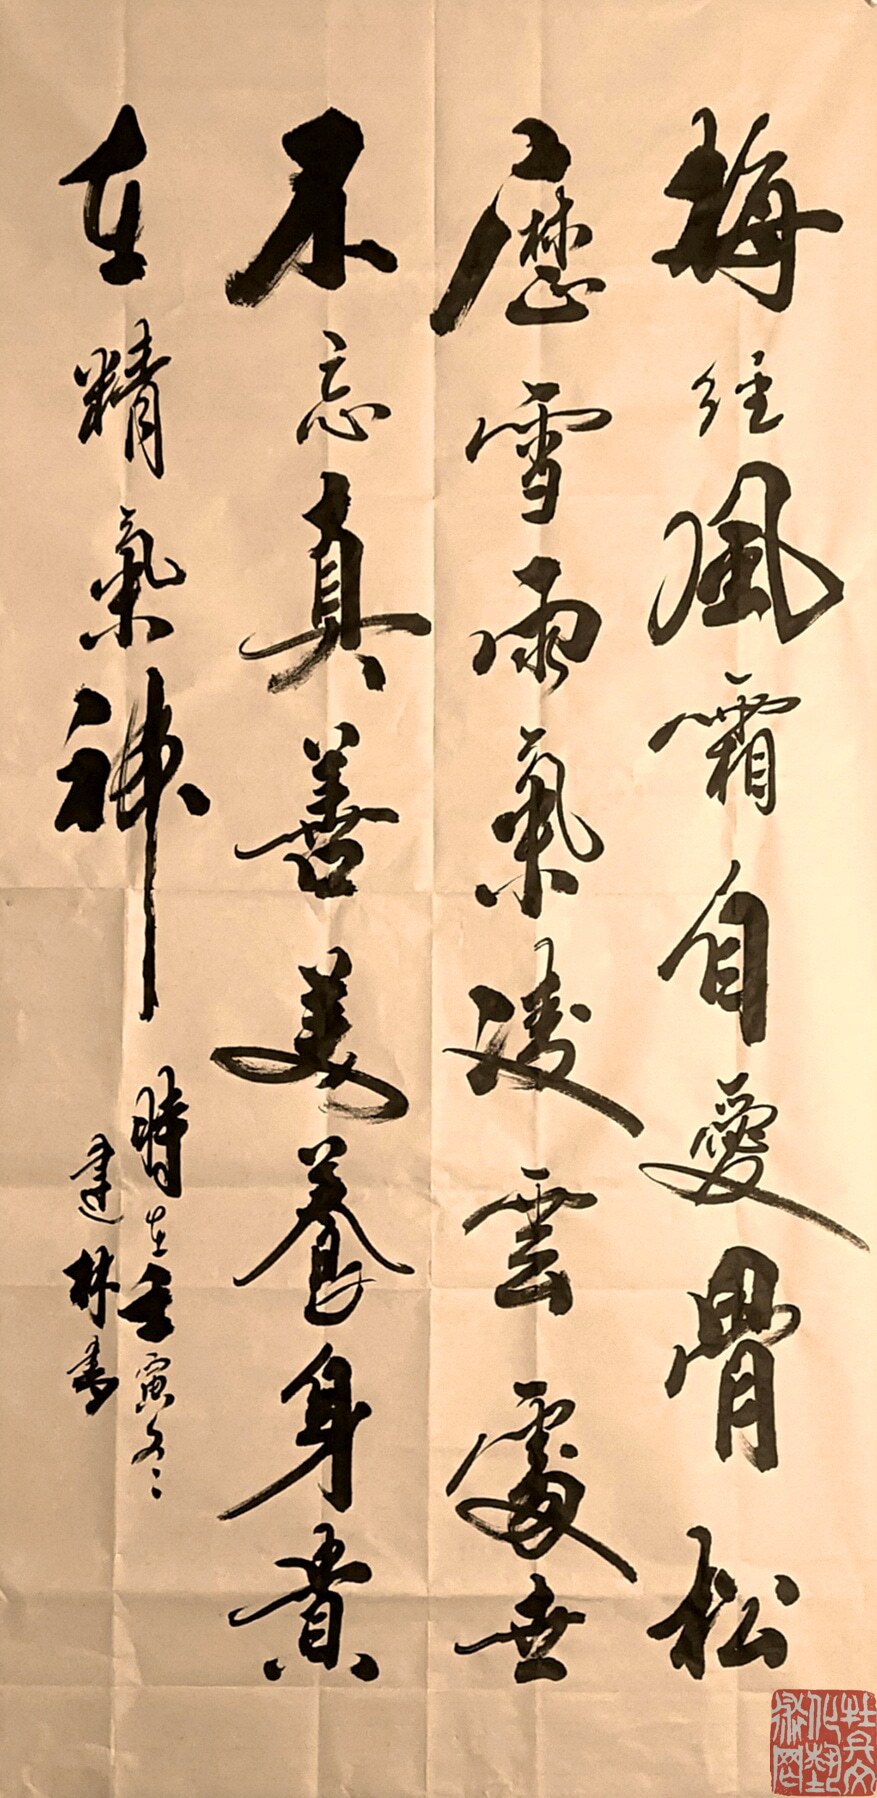 梅經風霜自愛骨松
歷雪雨氣凌雲處世
不忘真善美養身貴
在精氣神
時在壬寅冬
建林書